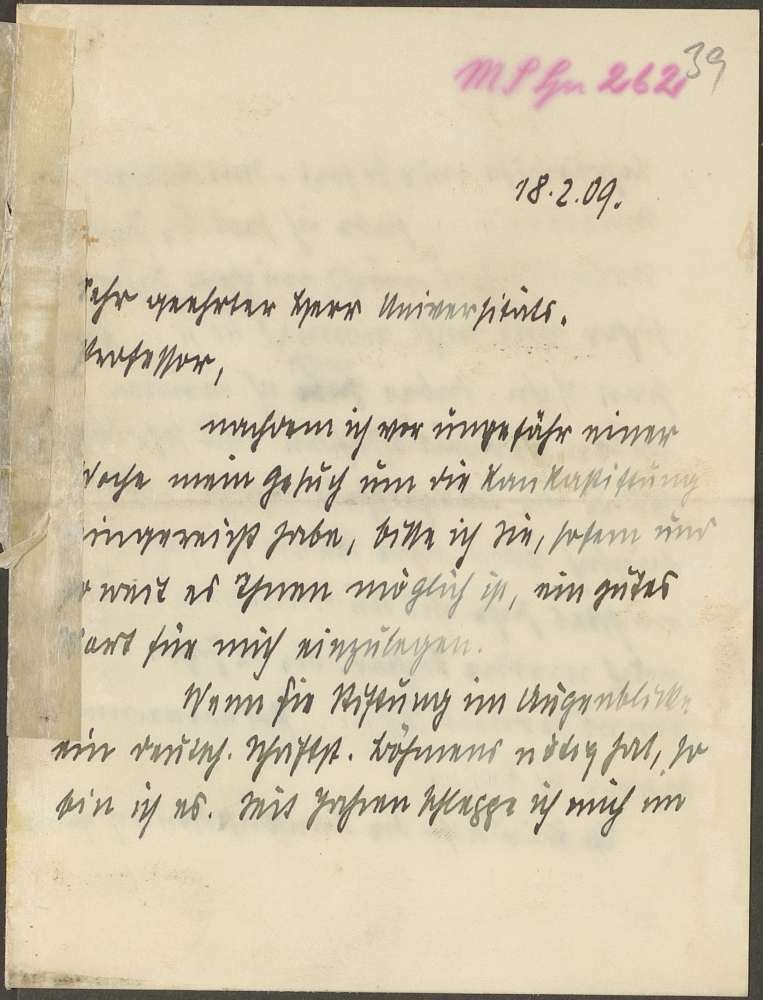 39
18.2.09.
Sehr geehrter Herr Universitäts-
Professor,
nachdem ich vor ungefähr einer
Woche mein Gesuch um die
eingereicht habe, bitte ich Sie, sofern und
so weit es Ihnen möglich ist, ein gutes
Wort für mich einzulegen.
Wenn die Stiftung im Augenblicke
ein deutsch. Schriftst. Böhmens nötig hat, so
bin ich es. Seit Jahren schleppe ich mich im